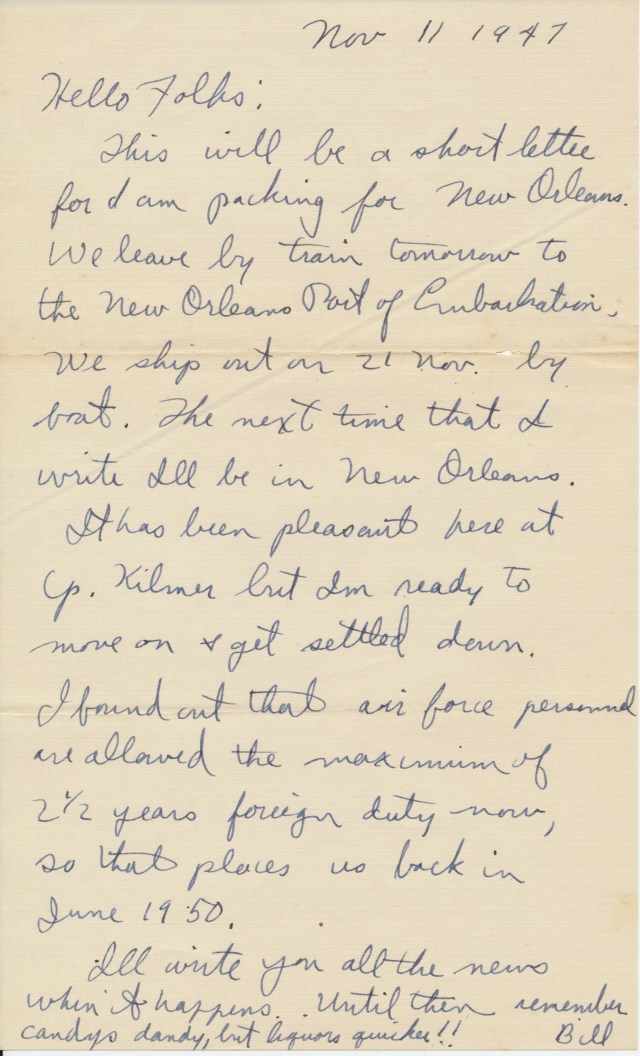 Nov 11 1947
Hello Folks:
This will be a short letter
for I am packing for New Orleans.
We leave by train tomorrow to
the New Orleans Port of Embarkation.
We ship out on 21 Nov. by
boat. The next time that I
write Ill be in New Orleans.
It has been pleasant here at
Cp. Kilmer but Im ready to
move on & get settled down.
I found out that air force personnel
are allowed the maximum of
2 1/2 years foreign duty now,
so that places us back in
June 1950.
Ill write you all the news
when it happens. Until then remember
candys dandy, but liquors quicker!! Bill